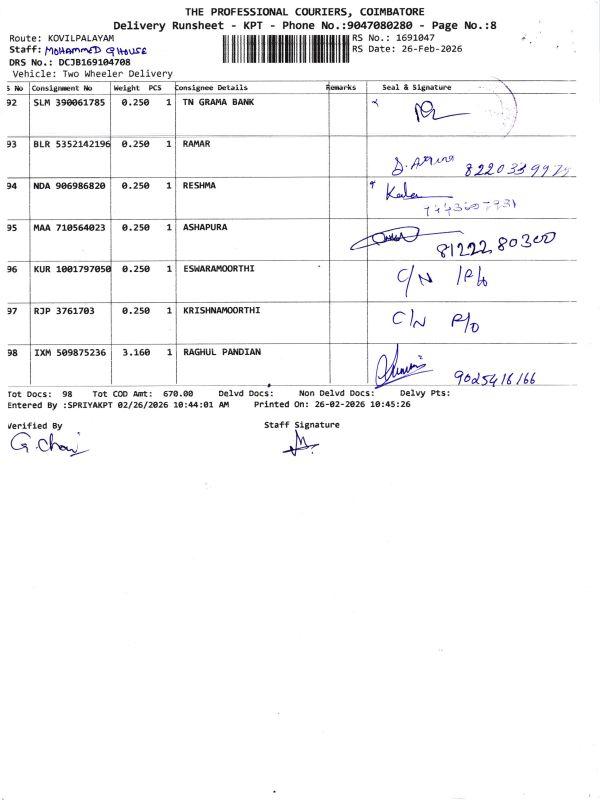 THE PROFESSIONAL COURIERS, COIMBATORE
Delivery Runsheet - KPT - Phone No.:9047080280 - Page No.:8
Route: KOVILPALAYAM RS No.: 1691047
Staff: MOHAMMED GHOUSE RS Date: 26-Feb-2026
DRS No.: DCJB169104708
Vehicle: Two Wheeler Delivery
S No Consignment No Weight PCS Consignee Details Remarks Seal & Signature
92 SLM 390061785 0.250 1 TN GRAMA BANK
93 BLR 5352142196 0.250 1 RAMAR
94 NDA 906986820 0.250 1 RESHMA Kala
95 MAA 710564023 0.250 1 ASHAPURA 8122280300
96 KUR 1001797050 0.250 1 ESWARAMOORTHI C/N
97 RJP 3761703 0.250 1 KRISHNAMOORTHI C/N P/O
98 IXM 509875236 3.160 1 RAGHUL PANDIAN 9025416166
Tot Docs: 98 Tot COD Amt: 670.00 Delvd Docs: Non Delvd Docs: Delvy Pts:
Entered By :SPRIYAKPT 02/26/2026 10:44:01 AM Printed On: 26-02-2026 10:45:26
Verified By Staff Signature